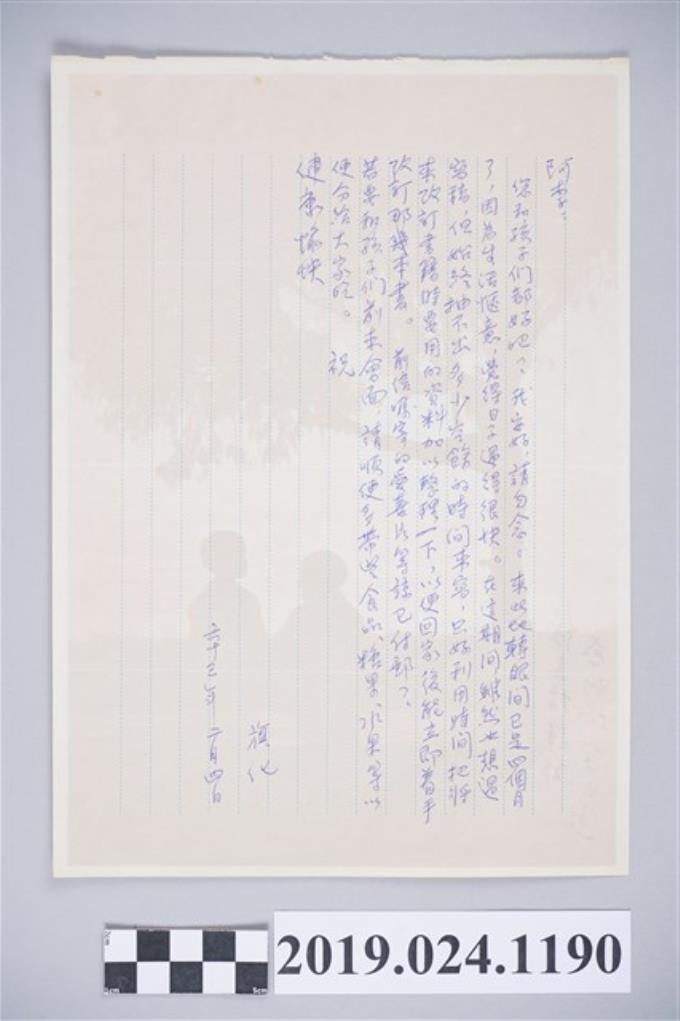 阿李：
你和孩子們都好吧？我安好，請勿念。來此地轉眼間已是四個月
了，因為生活愜意，覺得日子過得很快。在這期間雖然也想過
寫稿，但始終抽不出多少空餘的時間來寫，只好利用時間把將
來改訂書籍時要用的資料加以整理一下，以便回家後能立即着手
改訂那幾本書。 前信囑寄的愛喜比等諒已付郵了、
若要和孩子們前來會面，請順便多帶些食品、糖果、水果等以
便分給大家吃。 祝
健康愉快
旗化
六十三年 二月四日
2019.024.1190